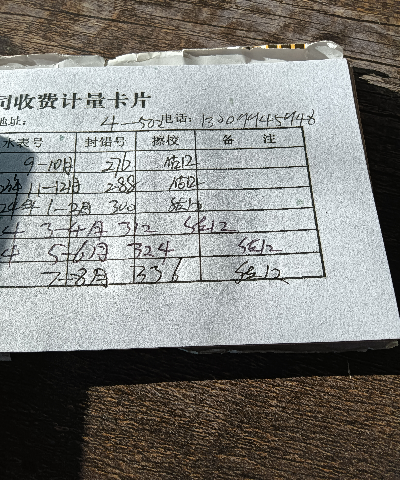 司收费计量卡片
地址: 4-502 电话: 13009945948
水表号 封铅号 擦校 备 注
9-10月 276 估12
年 11-12月 288 估12
24年 1-2月 300 估12
4 3-4月 312 估12
4 5-6月 324 估12
7-8月 336 估12